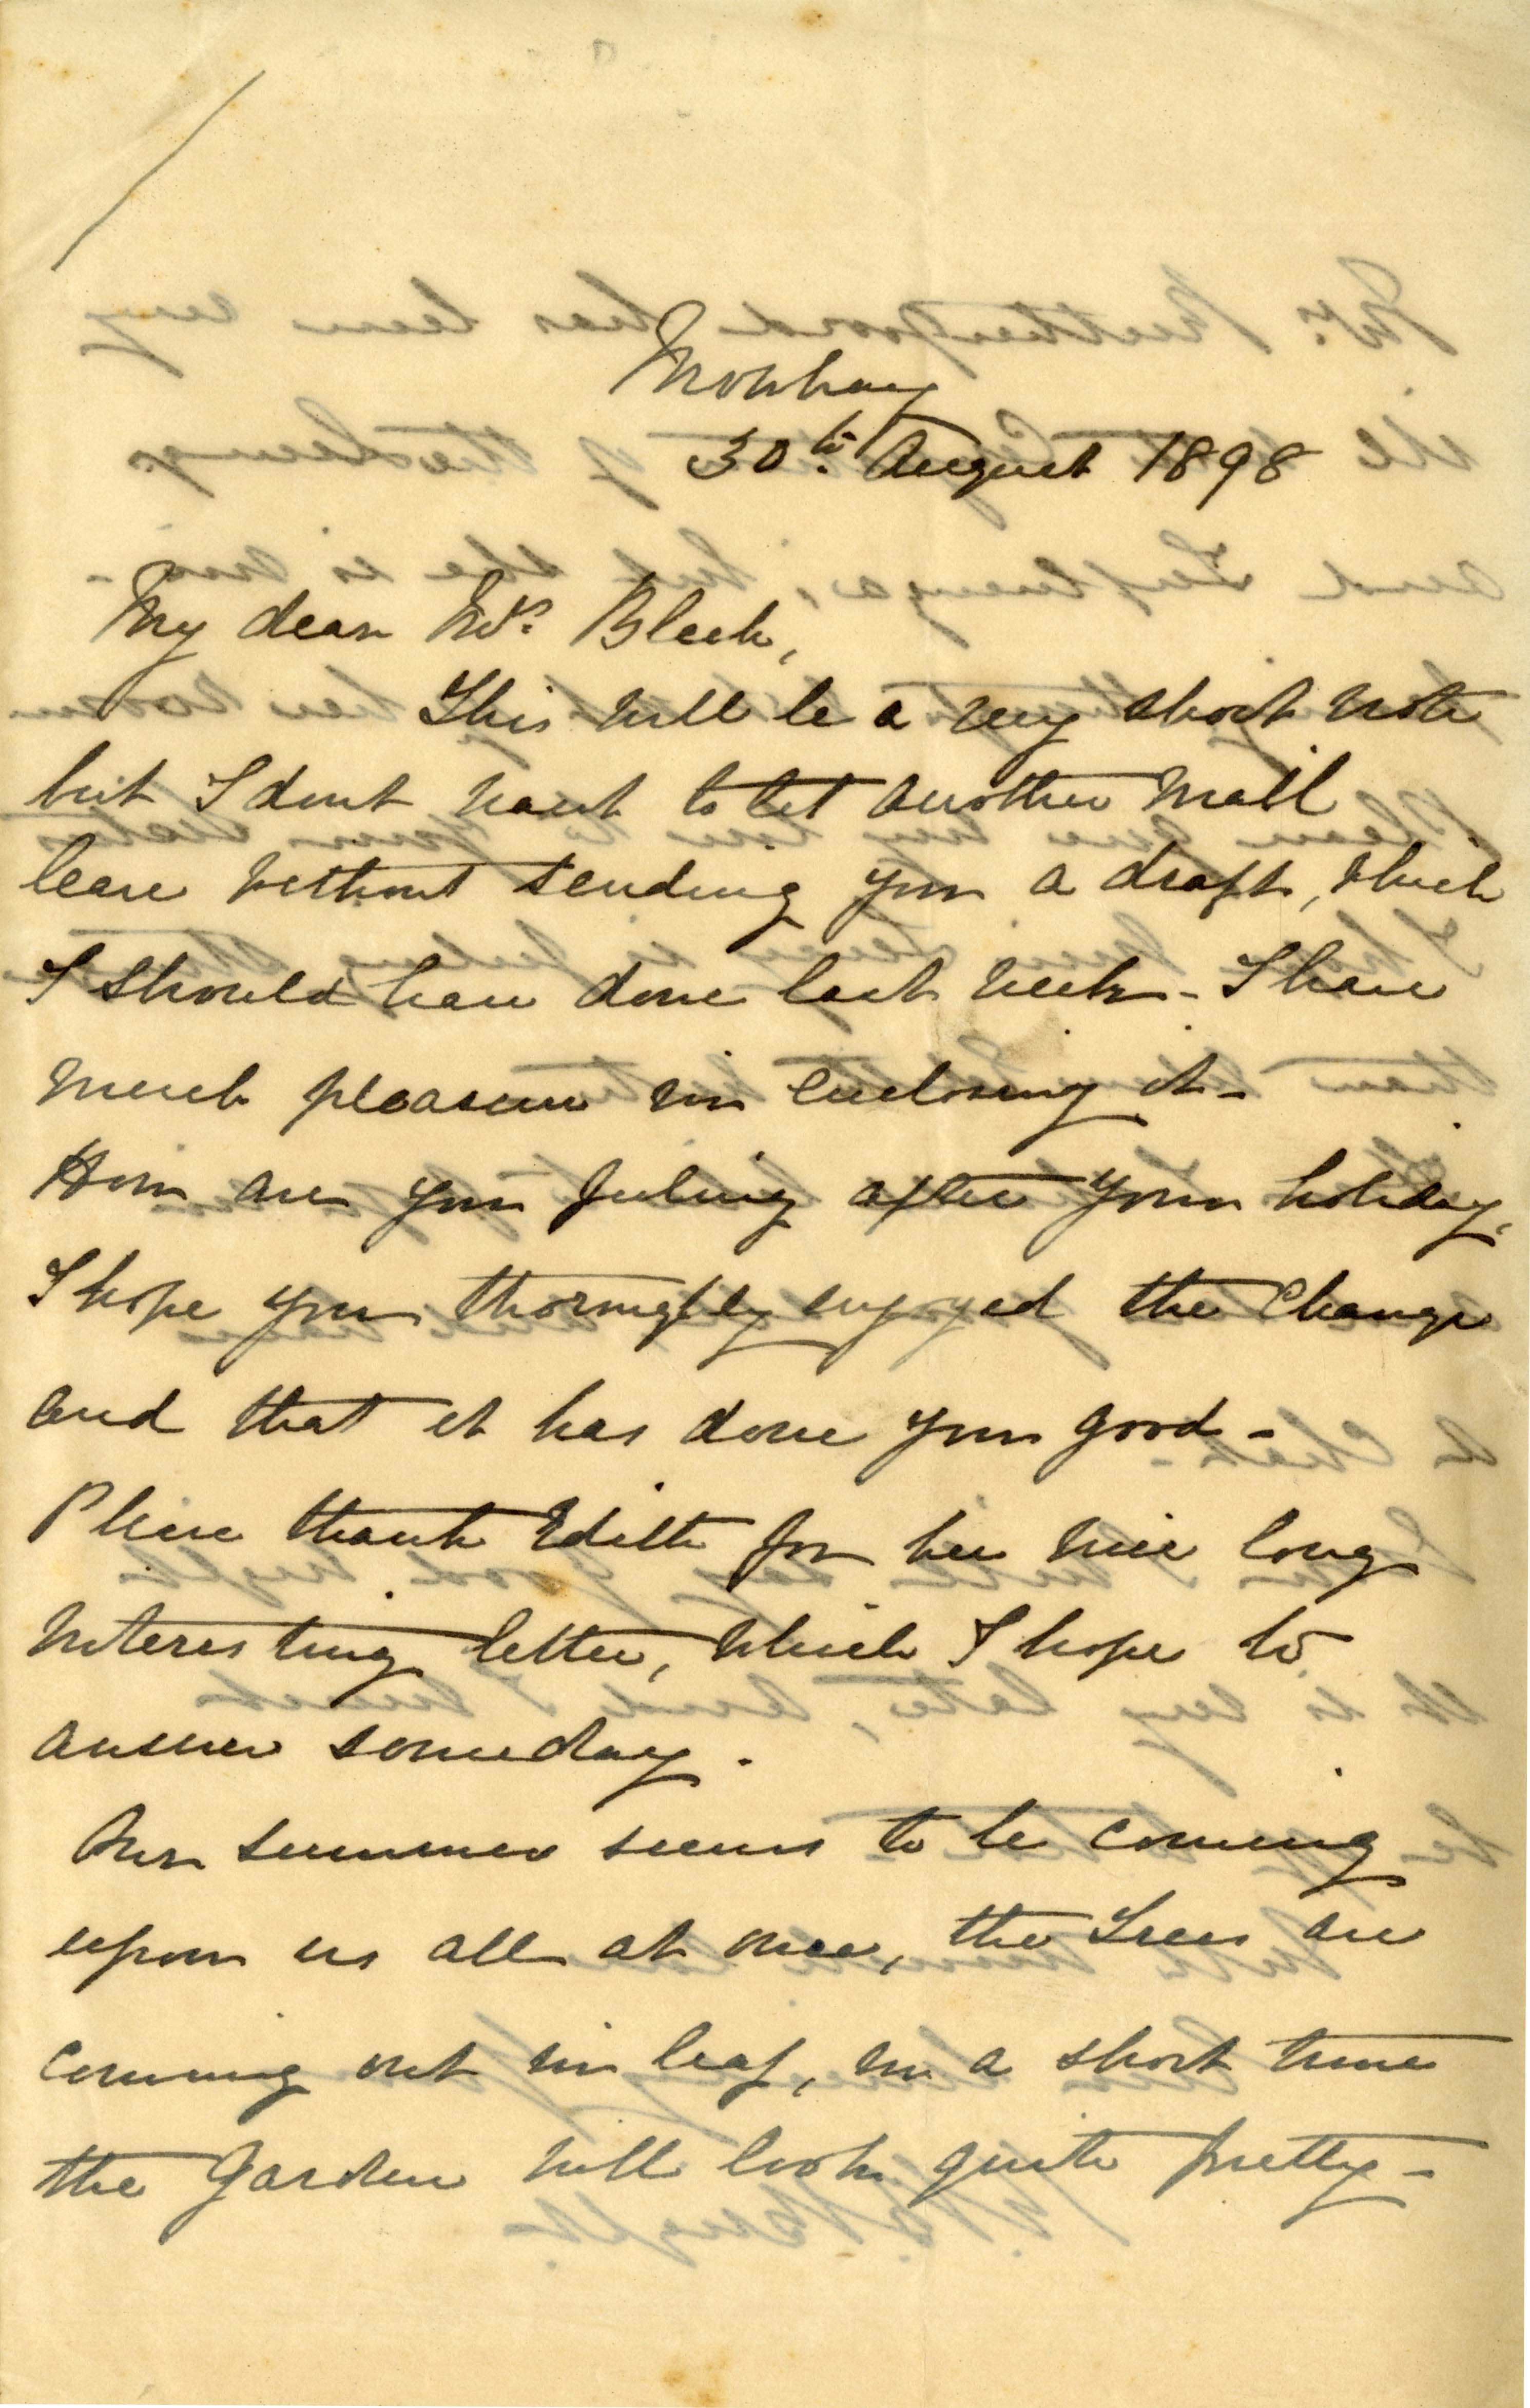 Mowbray
30th August 1898
My dear Mrs. Bleek,
This will be a very short note
but I dont want to let another mail
leave without sending you a draft, which
I should have done last week - I have
much pleasure in enclosing it -
How are you feeling after your holiday,
I hope you thoroughly enjoyed the change
and that it has done you good -
Please thank Edith for her nice long
interesting letter, which I hope to
answer someday.
Our summer seems to be coming
upon us all at once, the trees are
coming out in leaf, in a short time
the garden will look quite pretty -